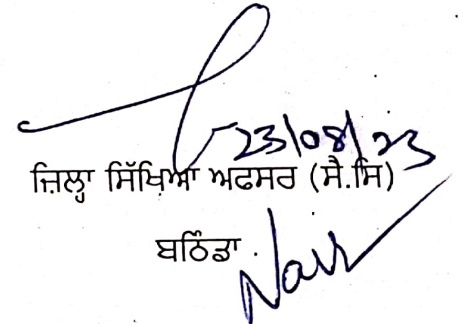 23/08/23
ਜ਼ਿਲ੍ਹਾ ਸਿੱਖਿਆ ਅਫਸਰ (ਸੈ.ਸਿ)
ਬਠਿੰਡਾ